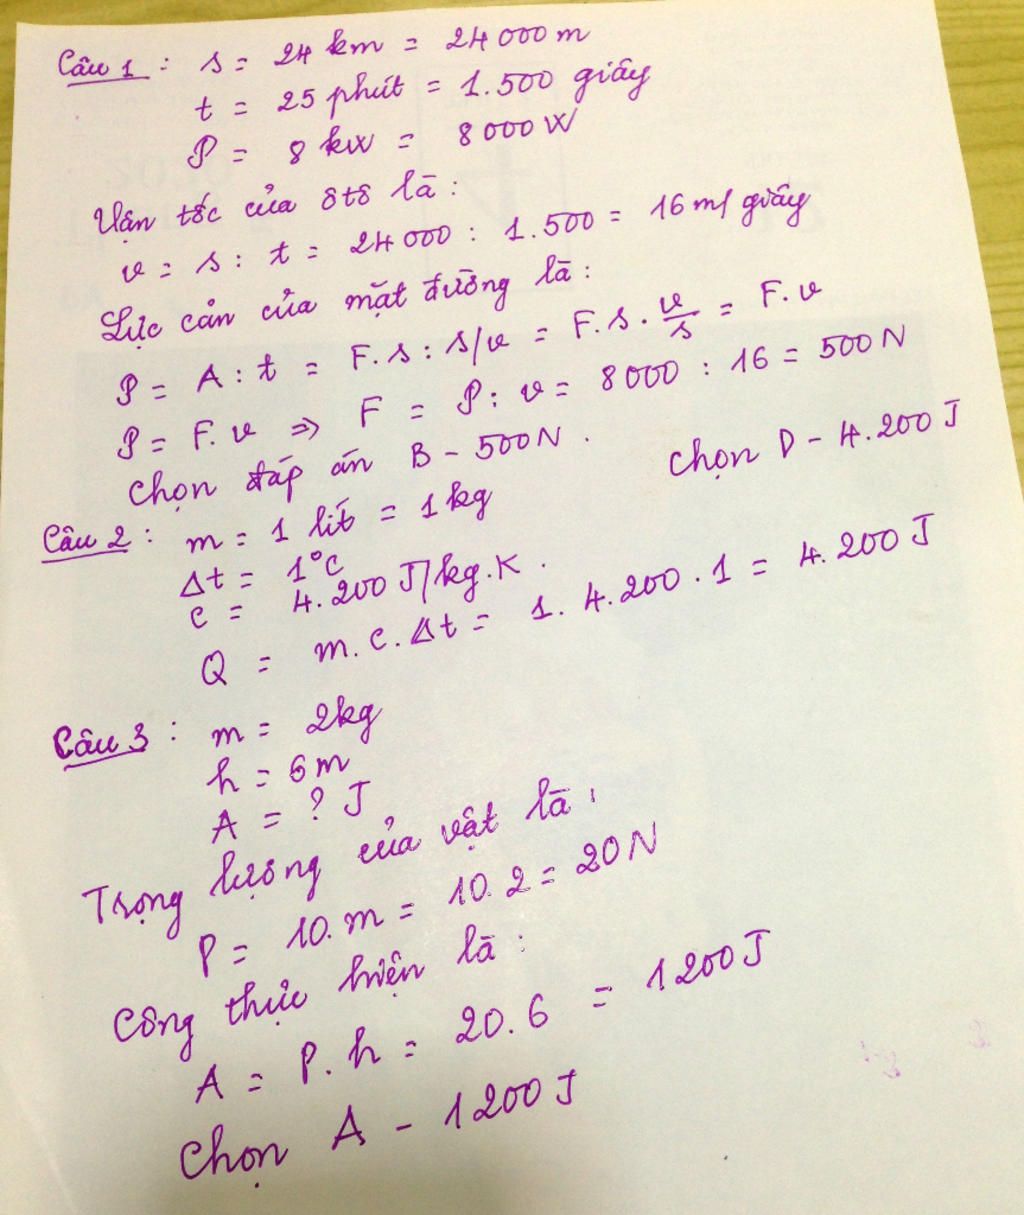 Câu 1 : s = 24 km = 24000 m
t = 25 phút = 1.500 giây
P = 8 kW = 8000 W
Vận tốc của ôtô là :
v = s : t = 24000 : 1.500 = 16 m/giây
Lực cản của mặt đường là :
P = A : t = F.s : s/v = F.s.v/s = F.v
P = F.v ⇒ F = P : v = 8000 : 16 = 500 N
Chọn đáp án B - 500N .
Chọn D - 4.200 J
Câu 2 : m = 1 lít = 1 kg
Δt = 1°C
c = 4.200 J/kg.K .
Q = m.c.Δt = 1. 4.200 . 1 = 4.200 J
Câu 3 : m = 2kg
h = 6 m
A = ? J
Trọng lượng của vật là :
P = 10.m = 10.2 = 20 N
Công thực hiện là :
A = P.h = 20.6 = 1200 J
Chọn A - 1200 J